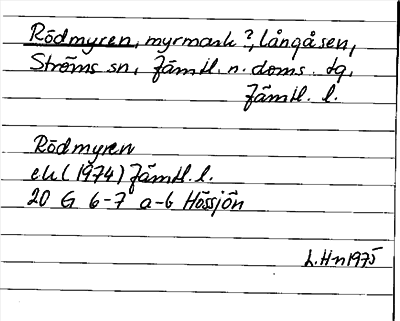 Rödmyren, myrmark?, Långåsen,
Ströms sn, Jämtl. n. doms. tg,
Jämtl. l.
Rödmyren
ek (1974) Jämtl. l.
20 G 6-7 a-b Hössjön
L. H-n 1975